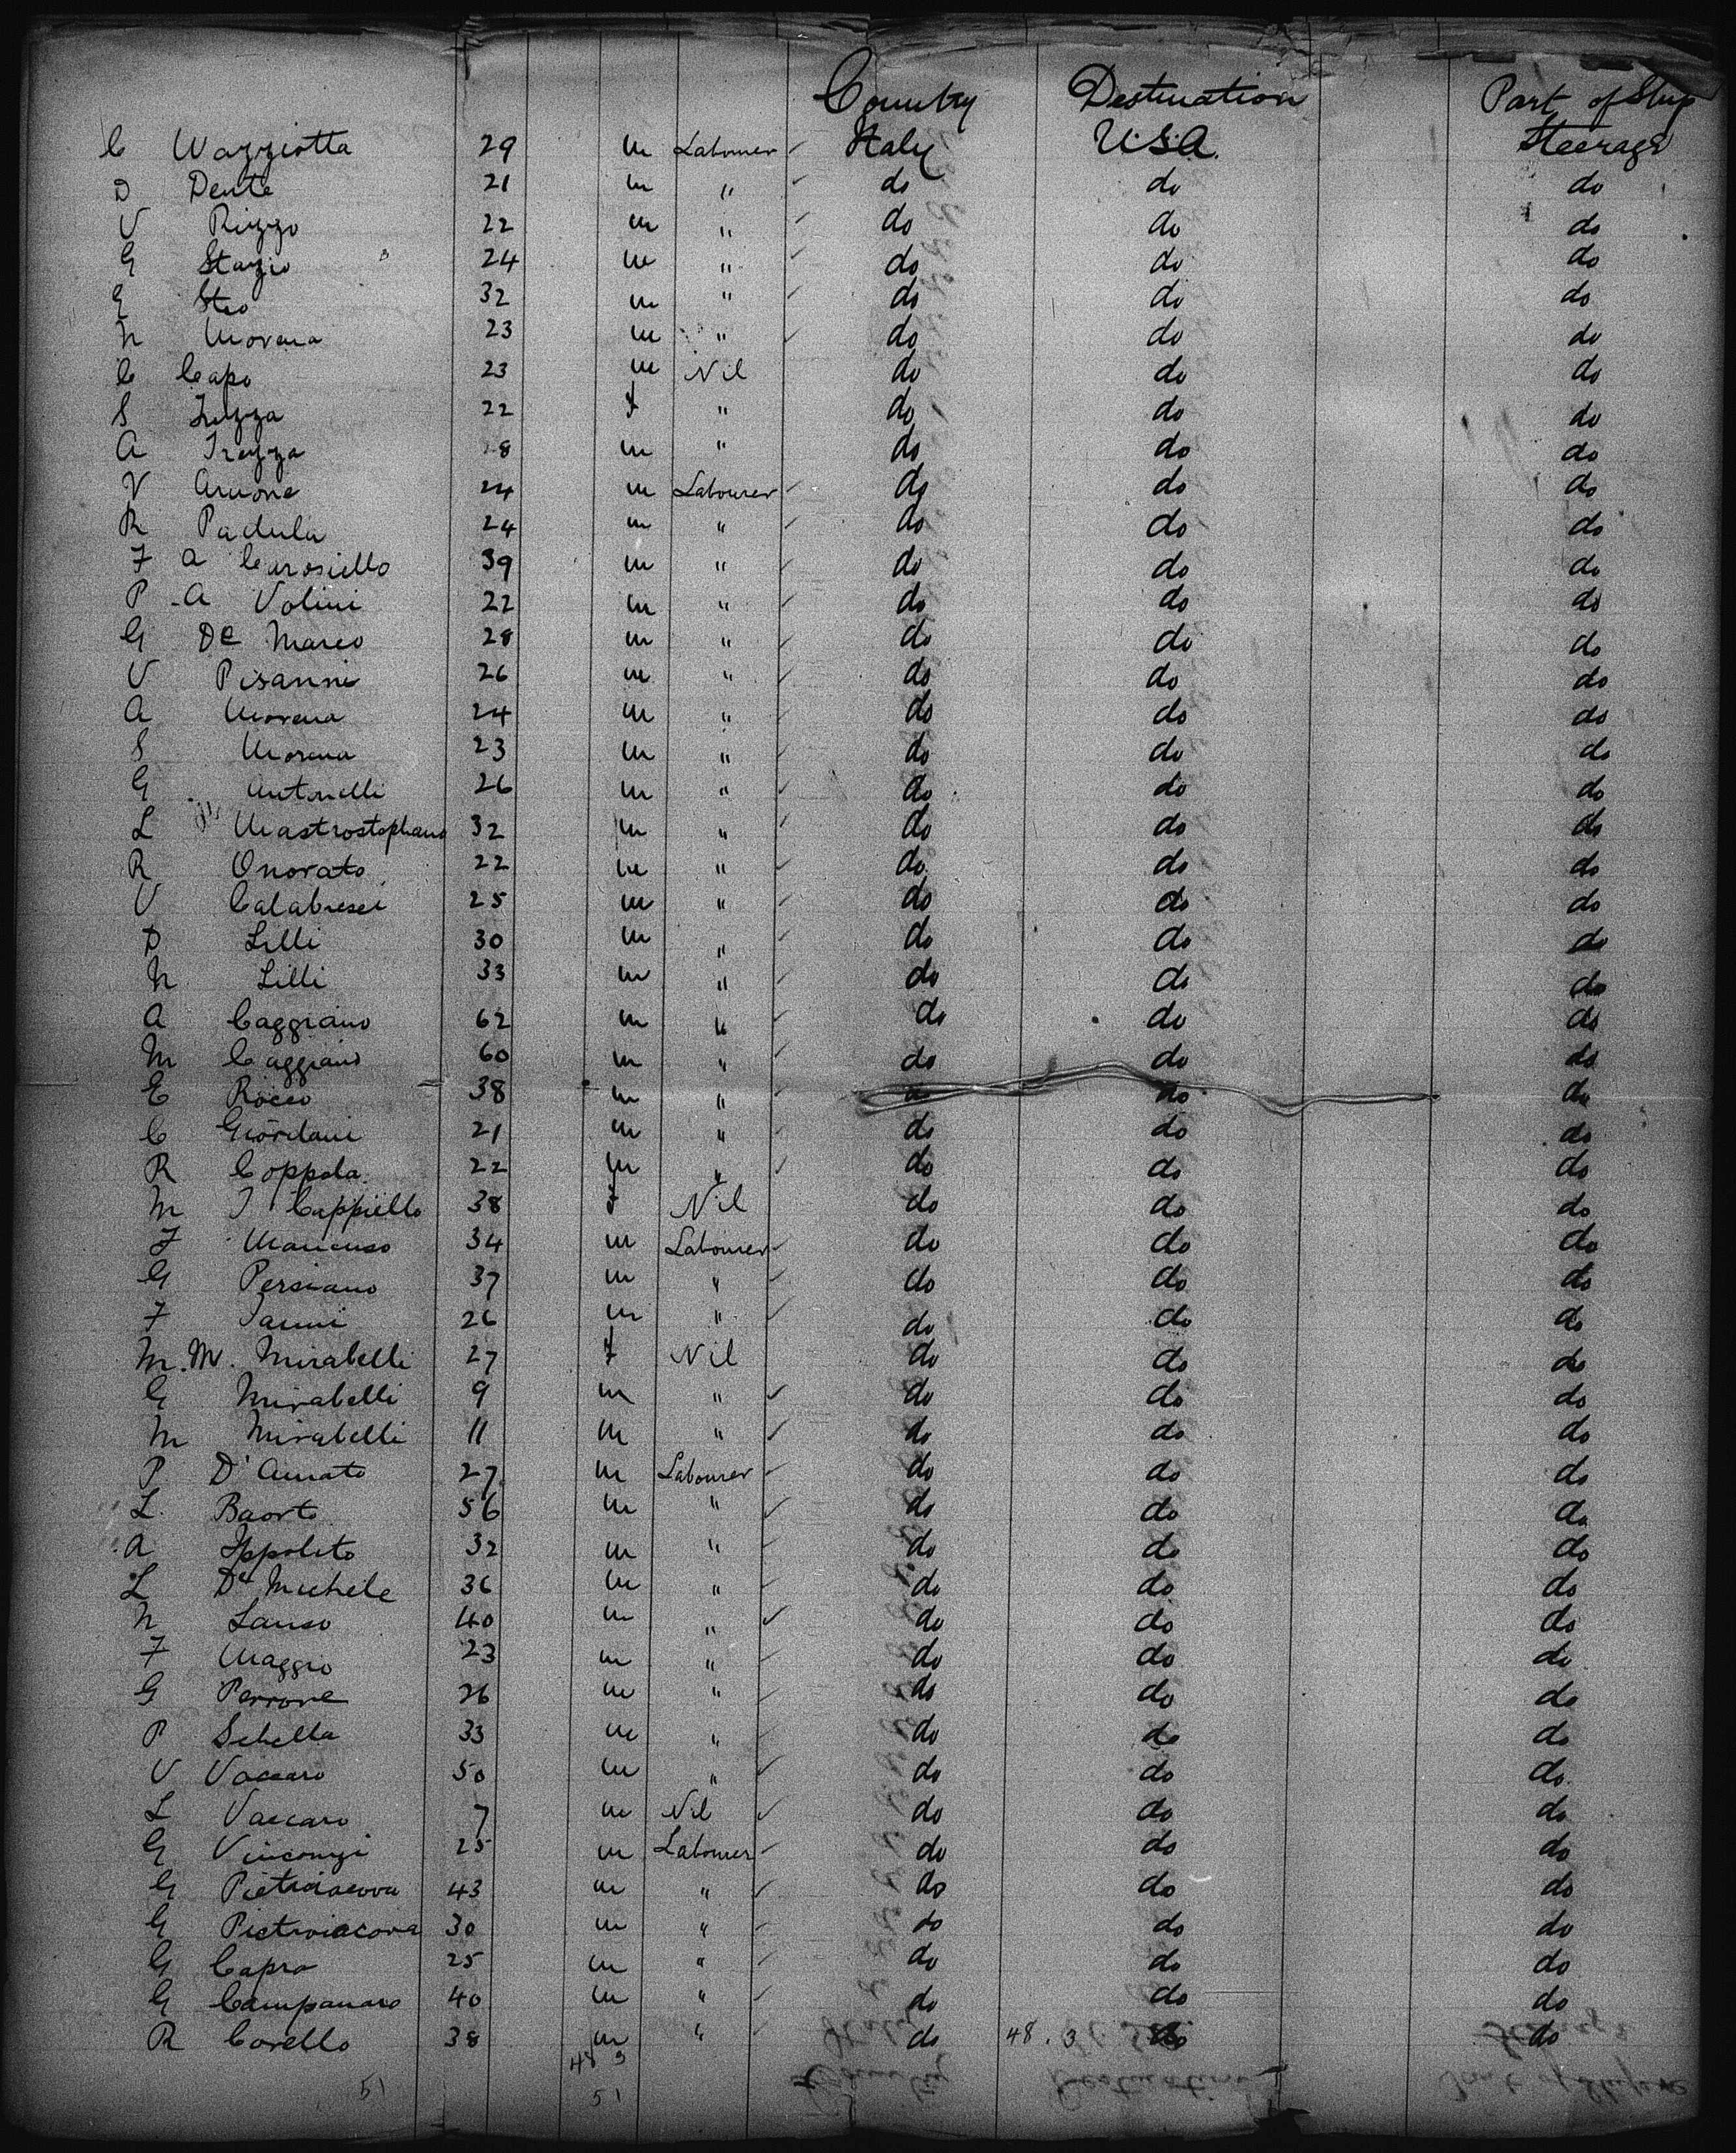 Country Destination Part of Ship
C Wazziotta 29 m Labourer ✓ Italy U.S.A. Steerage
D Dente 21 m " ✓ do do do
V Rizzo 22 m " ✓ do do do
G Stazio 24 m " ✓ do do do
G Steo 32 m " ✓ do do do
N Morena 23 m " ✓ do do do
C Capo 23 m Nil do do do
S 22 f " do do do
A Trezza m " do do do
V Arnone 24 m Labourer ✓ do do do
R Padula 24 m " ✓ do do do
F A Carosiello 39 m " ✓ do do do
P A Volini 22 m " ✓ do do do
G De Marco 28 m " ✓ do do do
V Pisanni 26 m " ✓ do do do
A Morena 24 m " ✓ do do do
S Morena 23 m " ✓ do do do
G Antonelli 26 m " ✓ do do do
L Mastrostephano 32 m " ✓ do do do
R Onorato 22 m " ✓ do do do
V Calabresei 25 m " ✓ do do do
D Lilli 30 m " ✓ do do do
N Lilli 33 m " ✓ do do do
A Caggiano 62 m " ✓ do do do
M Caggiano 60 m " ✓ do do do
E Rocco 38 m " ✓ do do do
C Giordani 21 m " ✓ do do do
R Coppola 22 m " ✓ do do do
M I Cappiello 38 f Nil do do do
F Mancuso 34 m Labourer ✓ do do do
G Persiano 37 m " ✓ do do do
F Ianni 26 m " ✓ do do do
M. M. Mirabelli 27 f Nil do do do
G Mirabelli 9 m " ✓ do do do
M Mirabelli 11 m " ✓ do do do
P D'Amato 27 m Labourer ✓ do do do
L. Baorto 56 m " ✓ do do do
A Ippolito 32 m " ✓ do do do
L De Michele 36 m " ✓ do do do
N Lanso 40 m " ✓ do do do
F Maggio 23 m " ✓ do do do
G Perrone 26 m " ✓ do do do
P Schella 33 m " ✓ do do do
V Vaccaro 50 m " ✓ do do do
L Vaccaro 7 m Nil ✓ do do do
G Vinconzi 25 m Labourer ✓ do do do
G Pietroiacova 43 m " ✓ do do do
G Pietroiacova 30 m " ✓ do do do
G Capra 25 m " ✓ do do do
G Campanaro 40 m " ✓ do do do
R Corello 38 m " ✓ do 48.3 do do
48 3
51 51